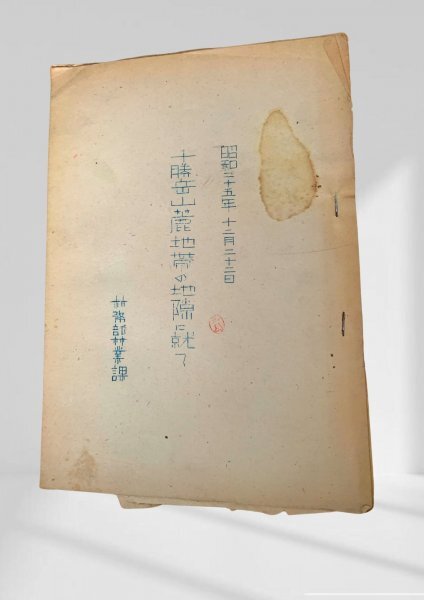 昭和二十五年 十二月二十二日
十勝岳山麓地帯の地隙に就て
林務部林業課